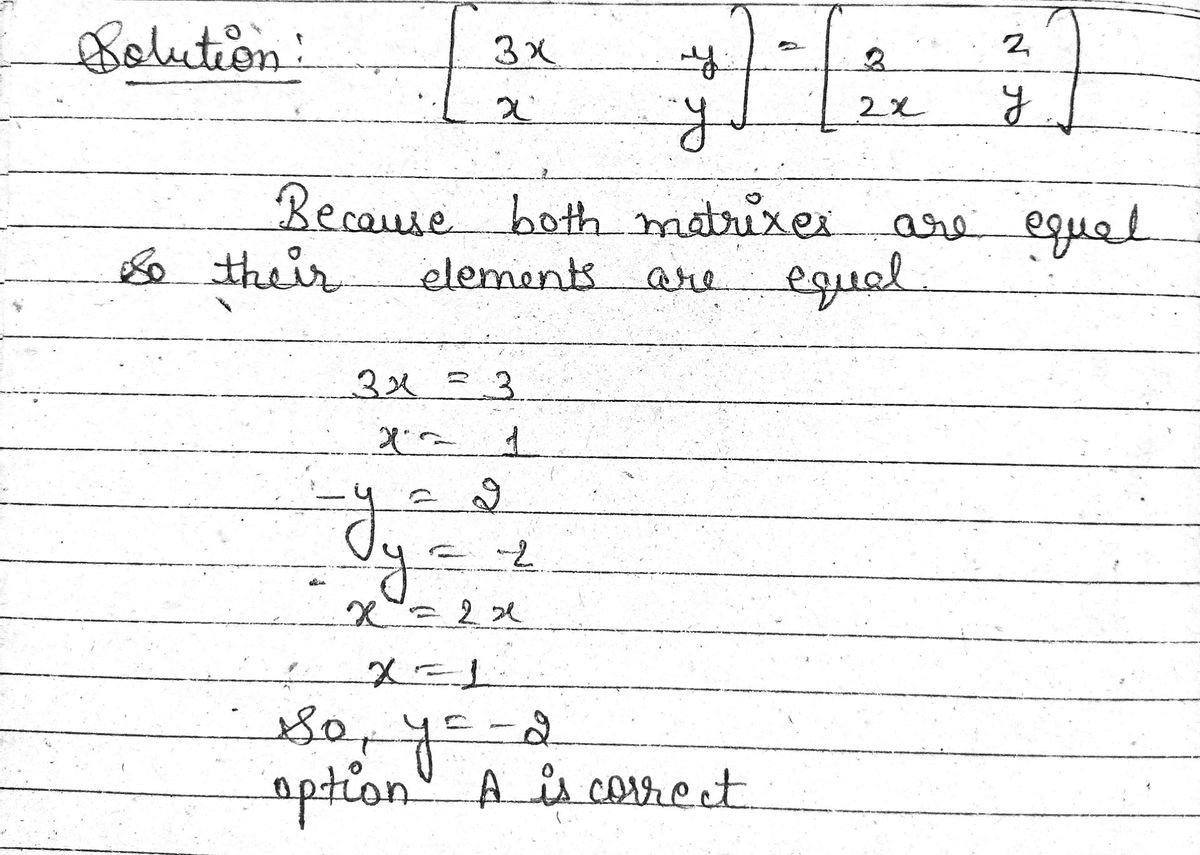 Solution: [ 3x -y ] = [ 3 2 ]
[ x y ] [ 2x y ]
Because both matrixes are equal
so their elements are equal.
3x = 3
x = 1
-y = 2
y = -2
x = 2x
x = 1
So, y = -2
option A is correct